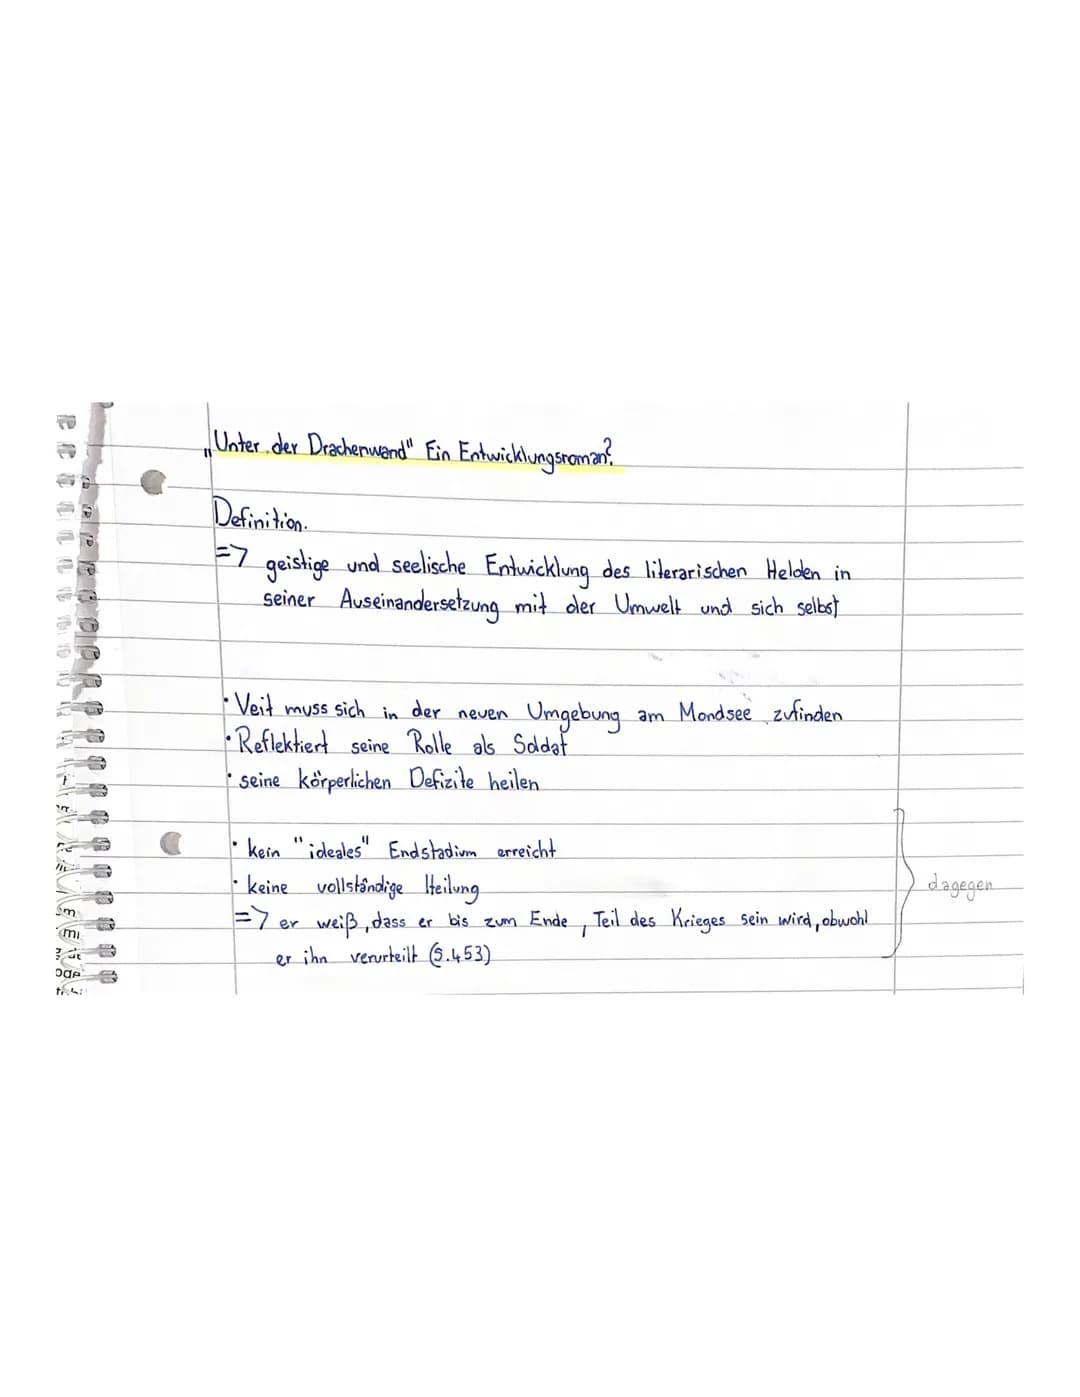 „Unter der Drachenwand" Ein Entwicklungsroman?
Definition.
=> geistige und seelische Entwicklung des literarischen Helden in
seiner Auseinandersetzung mit der Umwelt und sich selbst
• Veit muss sich in der neuen Umgebung am Mondsee zufinden
• Reflektiert seine Rolle als Soldat
• seine körperlichen Defizite heilen
• kein "ideales" Endstadium erreicht
• keine vollständige Heilung
dagegen
=> er weiß, dass er bis zum Ende, Teil des Krieges sein wird, obwohl
er ihn verurteilt (S.453)